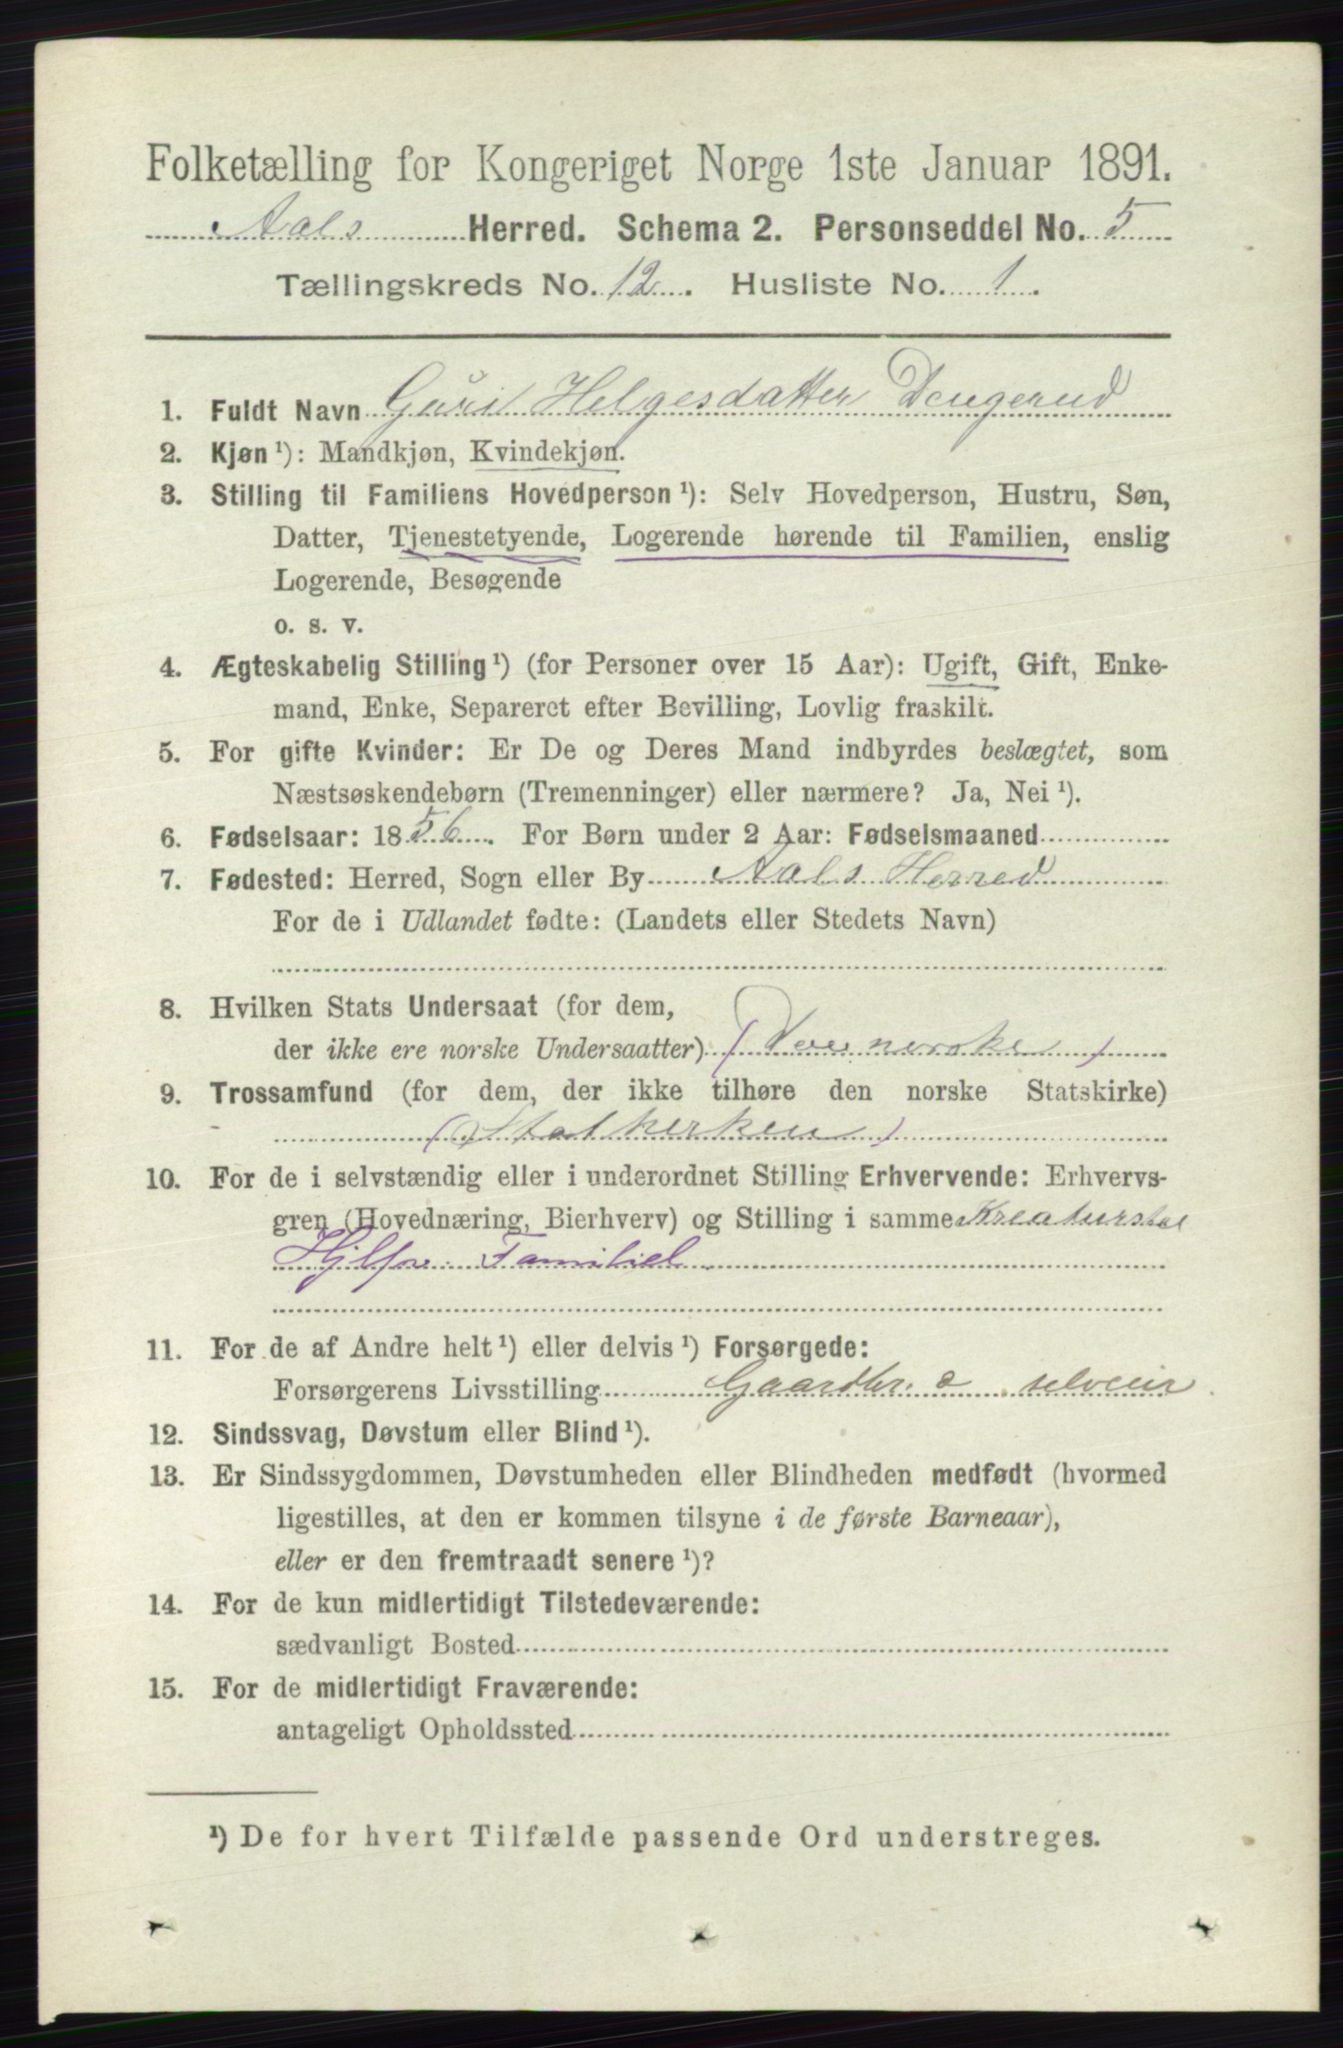 Folketælling for Kongeriget Norge 1ste Januar 1891.
Aals Herred. Schema 2. Personseddel No. 5
Tællingskreds No. 12. Husliste No. 1.
1. Fuldt Navn Guri Helgesdatter Dengerud
2. Kjøn ¹): Mandkjøn, Kvindekjøn.
3. Stilling til Familiens Hovedperson ¹): Selv Hovedperson, Hustru, Søn,
Datter, Tjenestetyende, Logerende hørende til Familien, enslig
Logerende, Besøgende
o. s. v.
4. Ægteskabelig Stilling ¹) (for Personer over 15 Aar): Ugift, Gift, Enke-
mand, Enke, Separeret efter Bevilling, Lovlig fraskilt.
5. For gifte Kvinder: Er De og Deres Mand indbyrdes beslægtet, som
Næstsøskendebørn (Tremenninger) eller nærmere? Ja, Nei ¹).
6. Fødselsaar: 1856. For Børn under 2 Aar: Fødselsmaaned
7. Fødested: Herred, Sogn eller By Aals Herred
For de i Udlandet fødte: (Landets eller Stedets Navn)
8. Hvilken Stats Undersaat (for dem,
der ikke ere norske Undersaatter) (Den norske)
9. Trossamfund (for dem, der ikke tilhøre den norske Statskirke)
(Statkirken)
10. For de i selvstændig eller i underordnet Stilling Erhvervende: Erhvervs-
gren (Hovednæring, Bierhverv) og Stilling i samme Kreaturstel
Hjlper Familiel
11. For de af Andre helt ¹) eller delvis ¹) Forsørgede:
Forsørgerens Livsstilling Gaardbr. selveier
12. Sindssvag, Døvstum eller Blind ¹).
13. Er Sindssygdommen, Døvstumheden eller Blindheden medfødt (hvormed
ligestilles, at den er kommen tilsyne i de første Barneaar),
eller er den fremtraadt senere ¹)?
14. For de kun midlertidigt Tilstedeværende:
sædvanligt Bosted
15. For de midlertidigt Fraværende:
antageligt Opholdssted
¹) De for hvert Tilfælde passende Ord understreges.